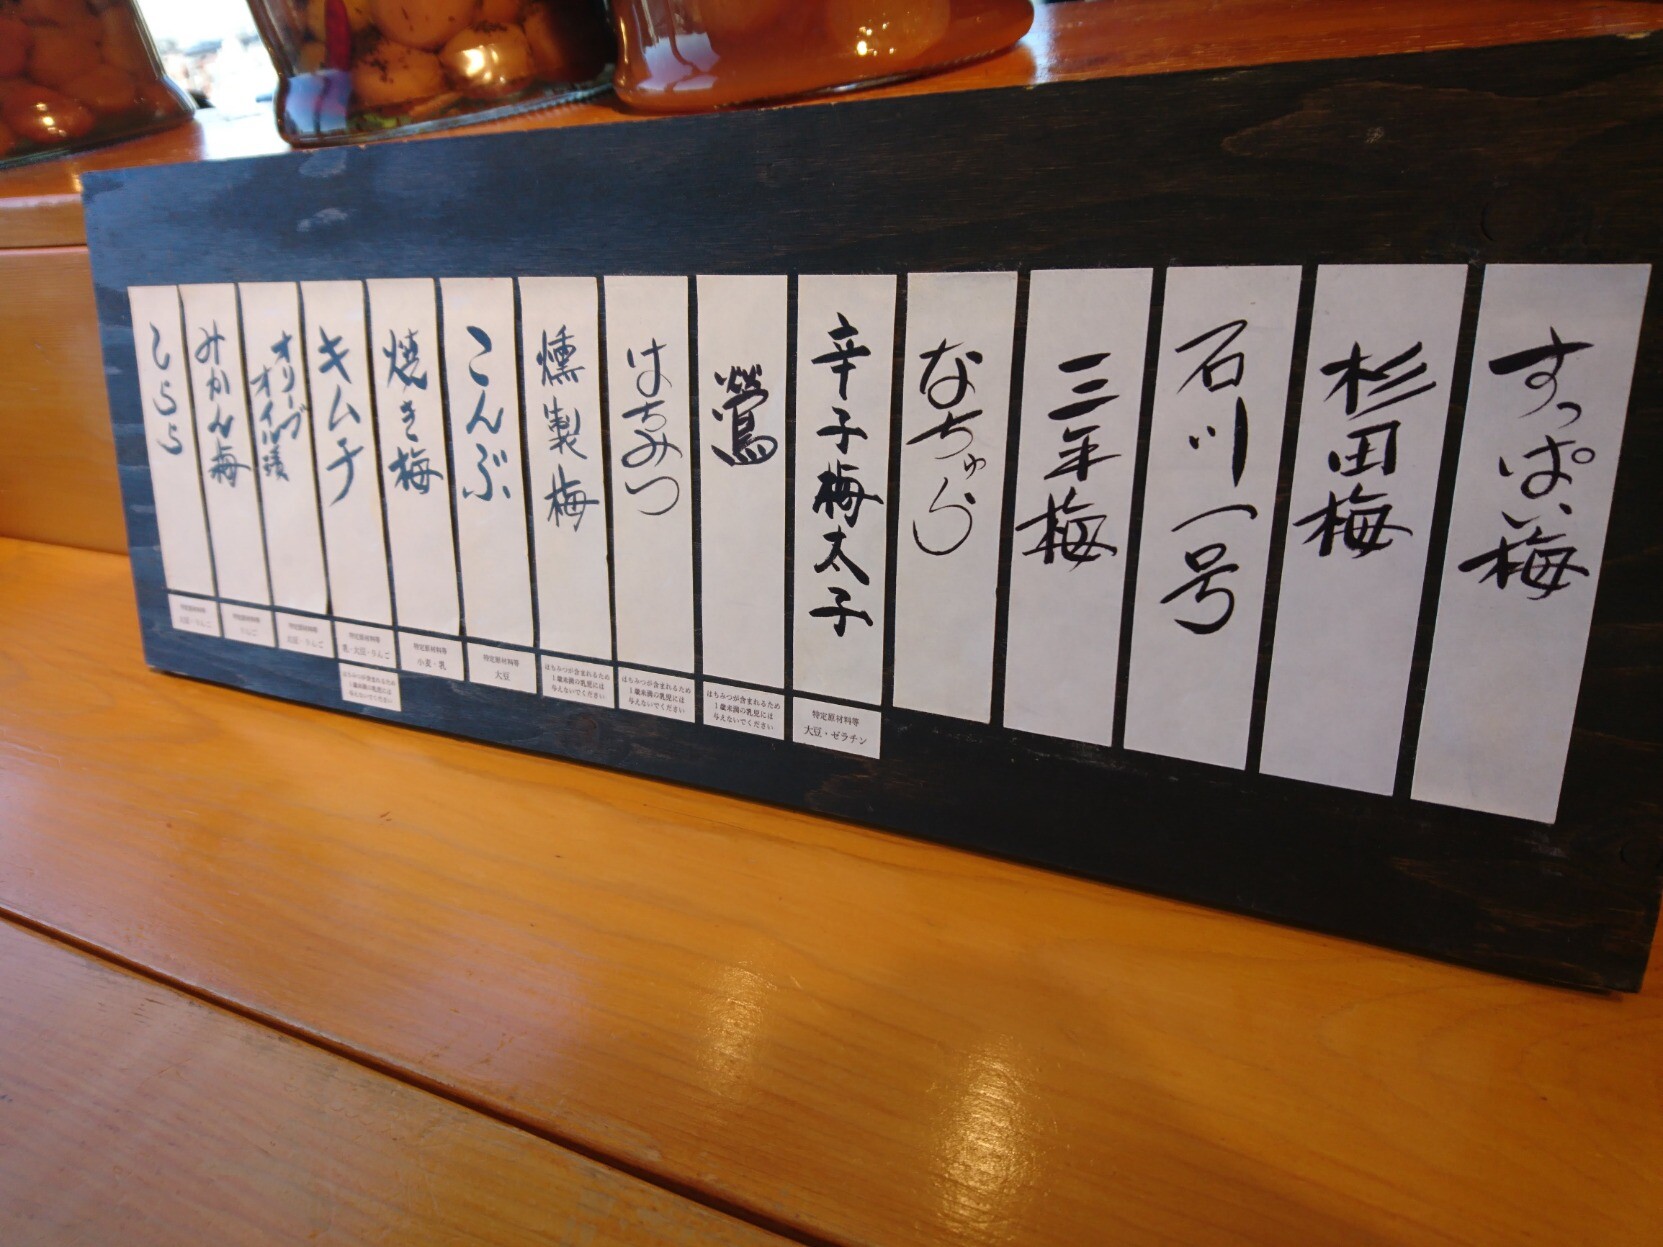 すっぱい梅
杉田梅
石川一号
三年梅
なちゅらる
辛子梅太子
特定原材料等
大豆・ゼラチン
鶯
はちみつが含まれるため
1歳未満の乳児には
与えないでください
はちみつ
はちみつが含まれるため
1歳未満の乳児には
与えないでください
燻製梅
はちみつが含まれるため
1歳未満の乳児には
与えないでください
こんぶ
特定原材料等
大豆
焼き梅
特定原材料等
小麦・乳
キムチ
特定原材料等
乳・大豆・りんご
はちみつが含まれるため
1歳未満の乳児には
与えないでください
オリーブ
オイル漬
特定原材料等
大豆・りんご
みかん梅
特定原材料等
りんご
しらら
特定原材料等
大豆・りんご